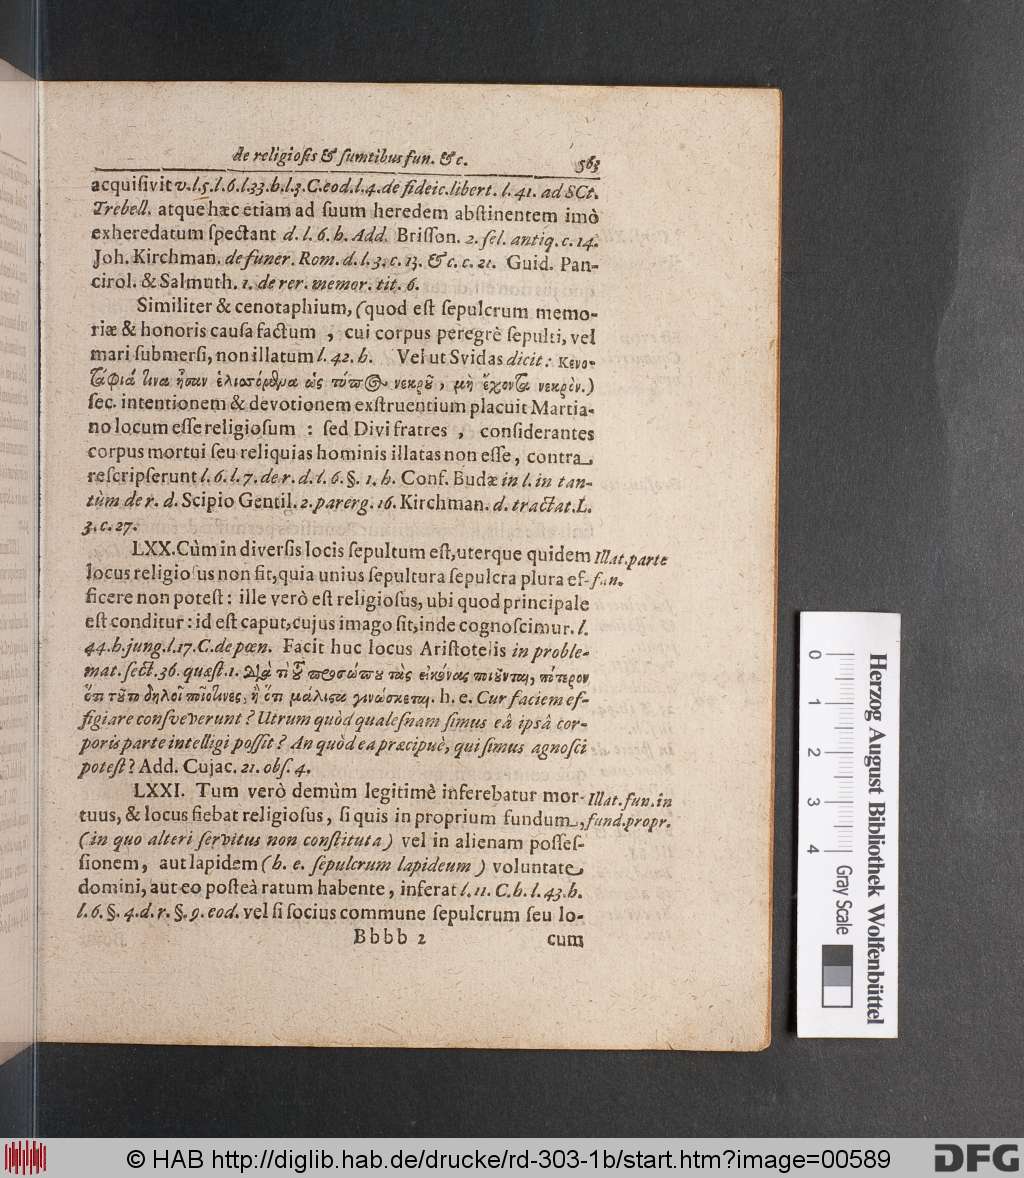 de religiosis & sumtibus fun. &c. 563
acquisivit v. l. 5. l. 6. l. 33. h. l. 3. C. eod. l. 4. de fideic. libert. l. 41. ad SCt.
Trebell. atque hæc etiam ad suum heredem abstinentem imò
exheredatum spectant d. l. 6. h. Add. Brisson. 2. sel. antiq. c. 14.
Joh. Kirchman. de funer. Rom. d. l. 3. c. 13. & c. c. 21. Guid. Pan-
cirol. & Salmuth. 1. de rer. memor. tit. 6.
Similiter & cenotaphium, (quod est sepulcrum memo-
riæ & honoris causa factum , cui corpus peregrè sepulti, vel
mari submersi, non illatum l. 42. h. Vel ut Svidas dicit: Κενο-
τάφιά τινα ἦσαν ὡς νεκροῦ, μὴ ἔχοντα νεκρὸν.)
sec. intentionem & devotionem exstruentium placuit Martia-
no locum esse religiosum : sed Divi fratres , considerantes
corpus mortui seu reliquias hominis illatas non esse, contra
rescripserunt l. 6. l. 7. de r. d. l. 6. §. 1. h. Conf. Budæ in l. in tan-
tùm de r. d. Scipio Gentil. 2. parerg. 16. Kirchman. d. tractat. L.
3. c. 27.
LXX. Cùm in diversis locis sepultum est, uterque quidem Illat. parte
locus religiosus non fit, quia unius sepultura sepulcra plura ef- fun.
ficere non potest : ille verò est religiosus, ubi quod principale
est conditur : id est caput, cujus imago fit, inde cognoscimur. l.
44. h. jung. l. 17. C. de pœn. Facit huc locus Aristotelis in proble-
mat. sect. 36. quæst. 1. Διὰ τί τοῦ προσώπου τὰς εἰκόνας ποιοῦνται, πότερον
ὅτι τοῦτο δηλοῖ ποῖοί τινες, ἢ ὅτι μάλιστα γινώσκεται. h. e. Cur faciem ef-
figiare consveverunt ? Utrum quòd qualesnam simus eâ ipsâ cor-
poris parte intelligi possit ? An quòd ea præcipuè, qui simus agnosci
potest ? Add. Cujac. 21. obs. 4.
LXXI. Tum verò demùm legitimè inferebatur mor- Illat. fun. in
tuus, & locus fiebat religiosus, si quis in proprium fundum, fund. propr.
(in quo alteri servitus non constituta) vel in alienam posses-
sionem, aut lapidem (h. e. sepulcrum lapideum ) voluntate
domini, aut eo posteà ratum habente, inferat l. 11. C. h. l. 43. h.
l. 6. §. 4. d. r. §. 9. eod. vel si socius commune sepulcrum seu lo-
Bbbb 2 cum
0 1 2 3 4
Gray Scale
Herzog August Bibliothek Wolfenbüttel
© HAB http://diglib.hab.de/drucke/rd-303-1b/start.htm?image=00589
DFG